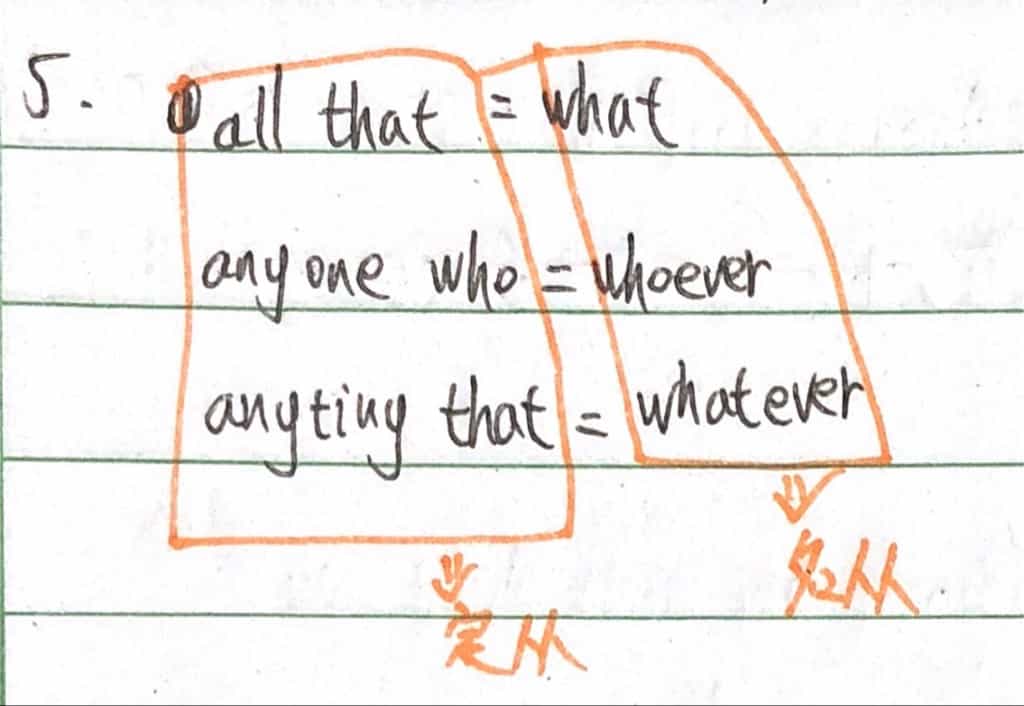 5. all that = what
anyone who = whoever
anyting that = whatever
⇓ ⇓
定从 名从